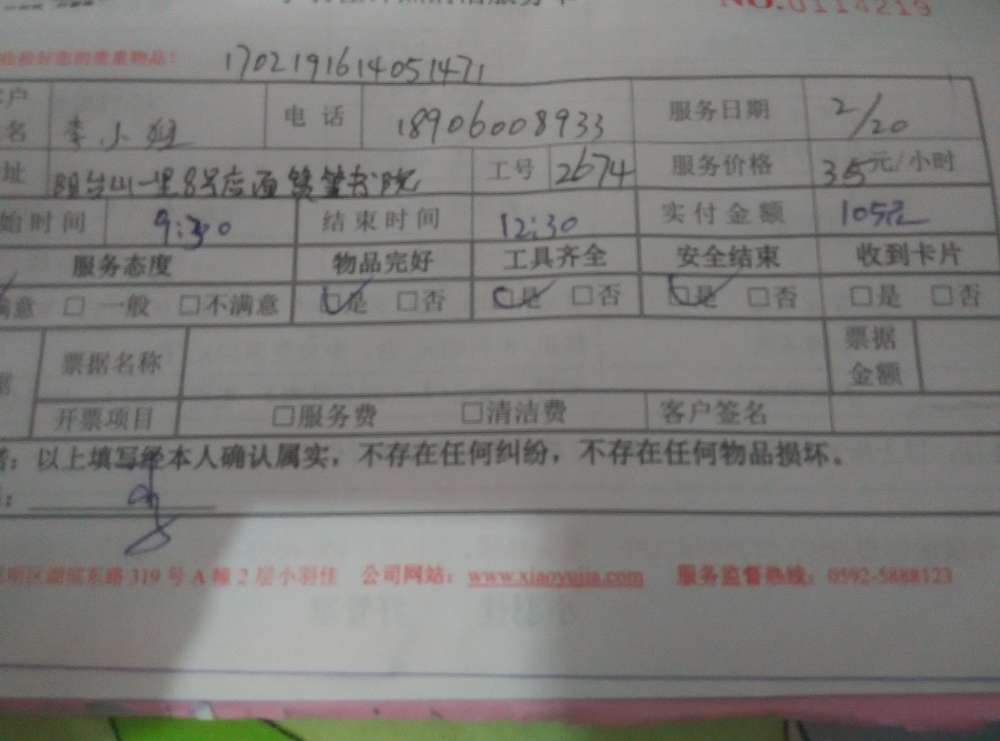 NO.0114219
检查好您的贵重物品!
1702191614051471
客户 名 李小姐 电话 18906008933 服务日期 2/20
址 阳台山一里8号 工号 2674 服务价格 35元/小时
始时间 9:30 结束时间 12:30 实付金额 105元
服务态度 物品完好 工具齐全 安全结束 收到卡片
满意 □ 一般 □不满意 ☑是 □否 ☑是 □否 ☑是 □否 □是 □否
票据名称 票据金额
开票项目 □服务费 □清洁费 客户签名
以上填写经本人确认属实,不存在任何纠纷,不存在任何物品损坏。
明区湖滨东路 319 号 A 幢 2 层小羽佳 公司网站: www.xiaoyujia.com 服务监督热线: 0592-5888123